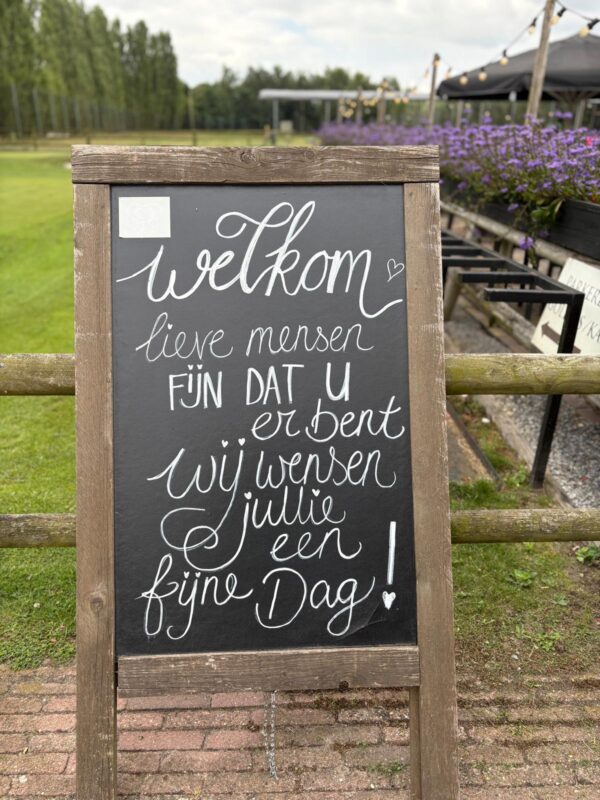 welkom
lieve mensen
FIJN DAT U
er bent
wij wensen
jullie
een
fijne Dag!